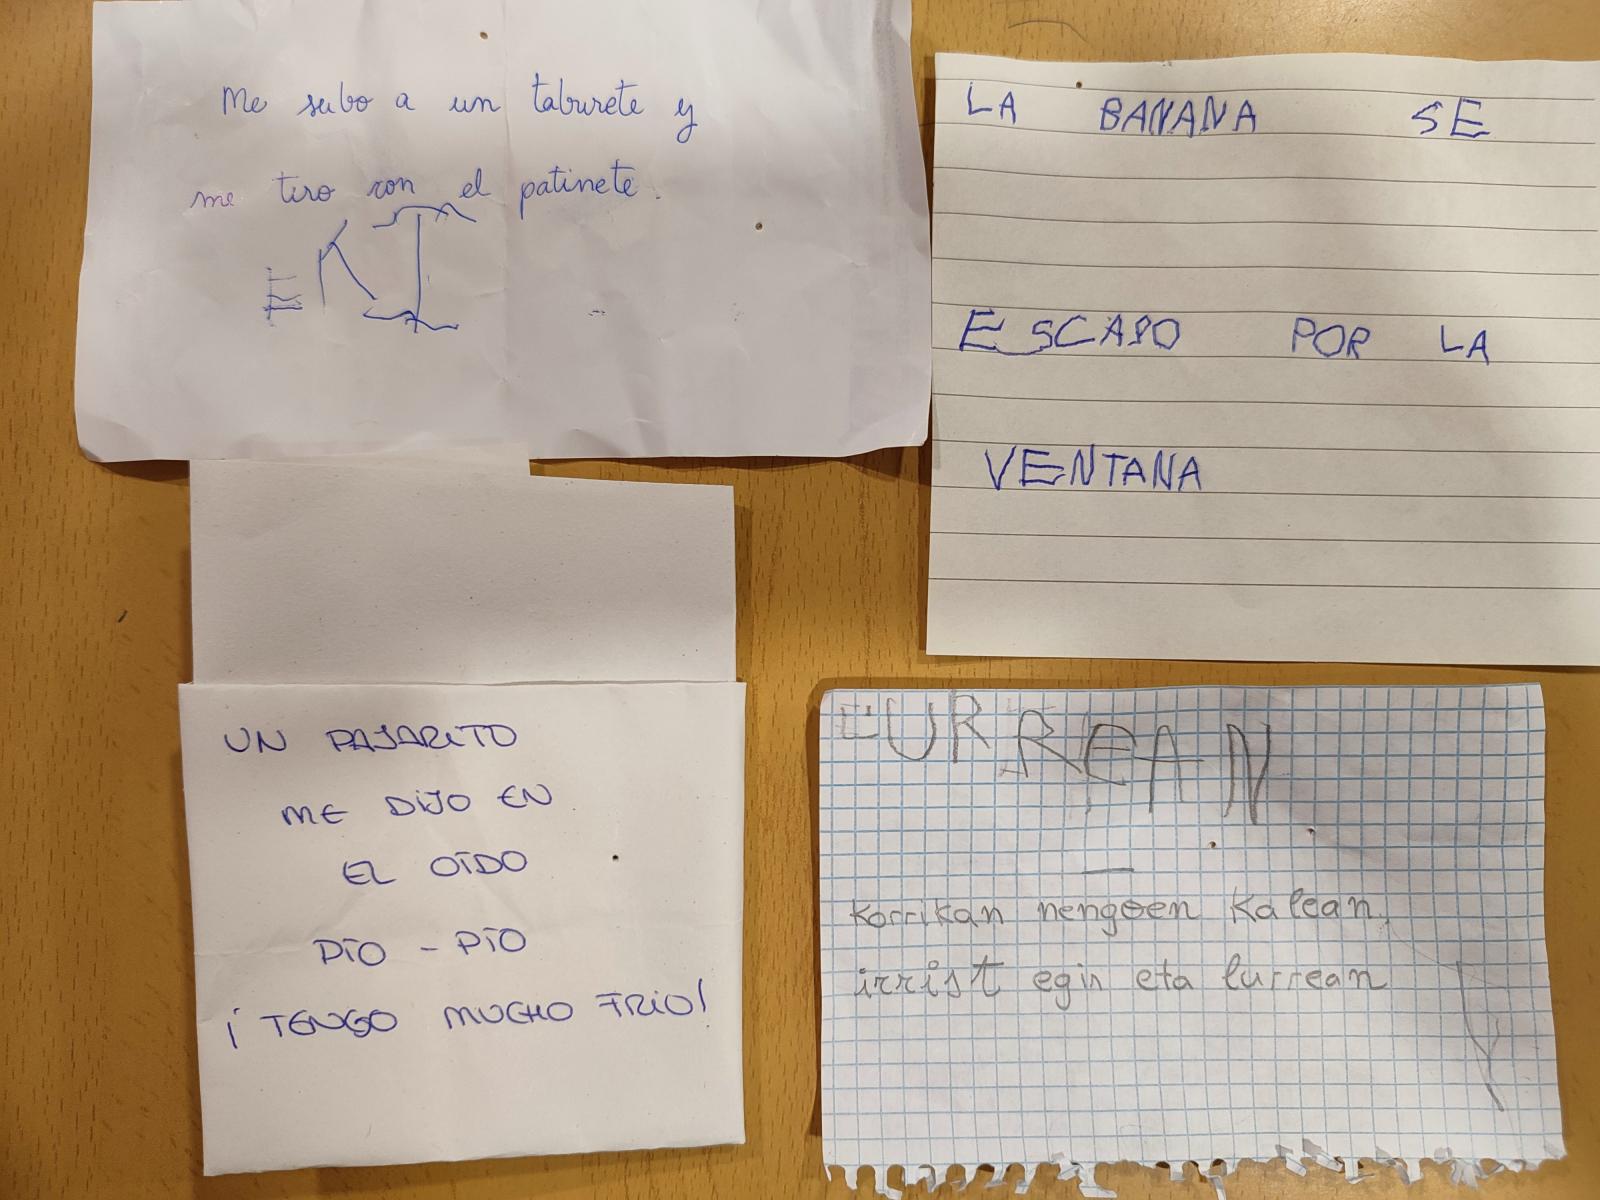 Me subo a un taburete y
me tiro con el patinete.
LA BANANA SE
ESCAPO POR LA
VENTANA
UN PAJARITO
ME DIJO EN
EL OÍDO
PÍO - PÍO
¡TENGO MUCHO FRIO!
LURREAN
Korrikan nengoen Kalean,
irrist egin eta lurrean